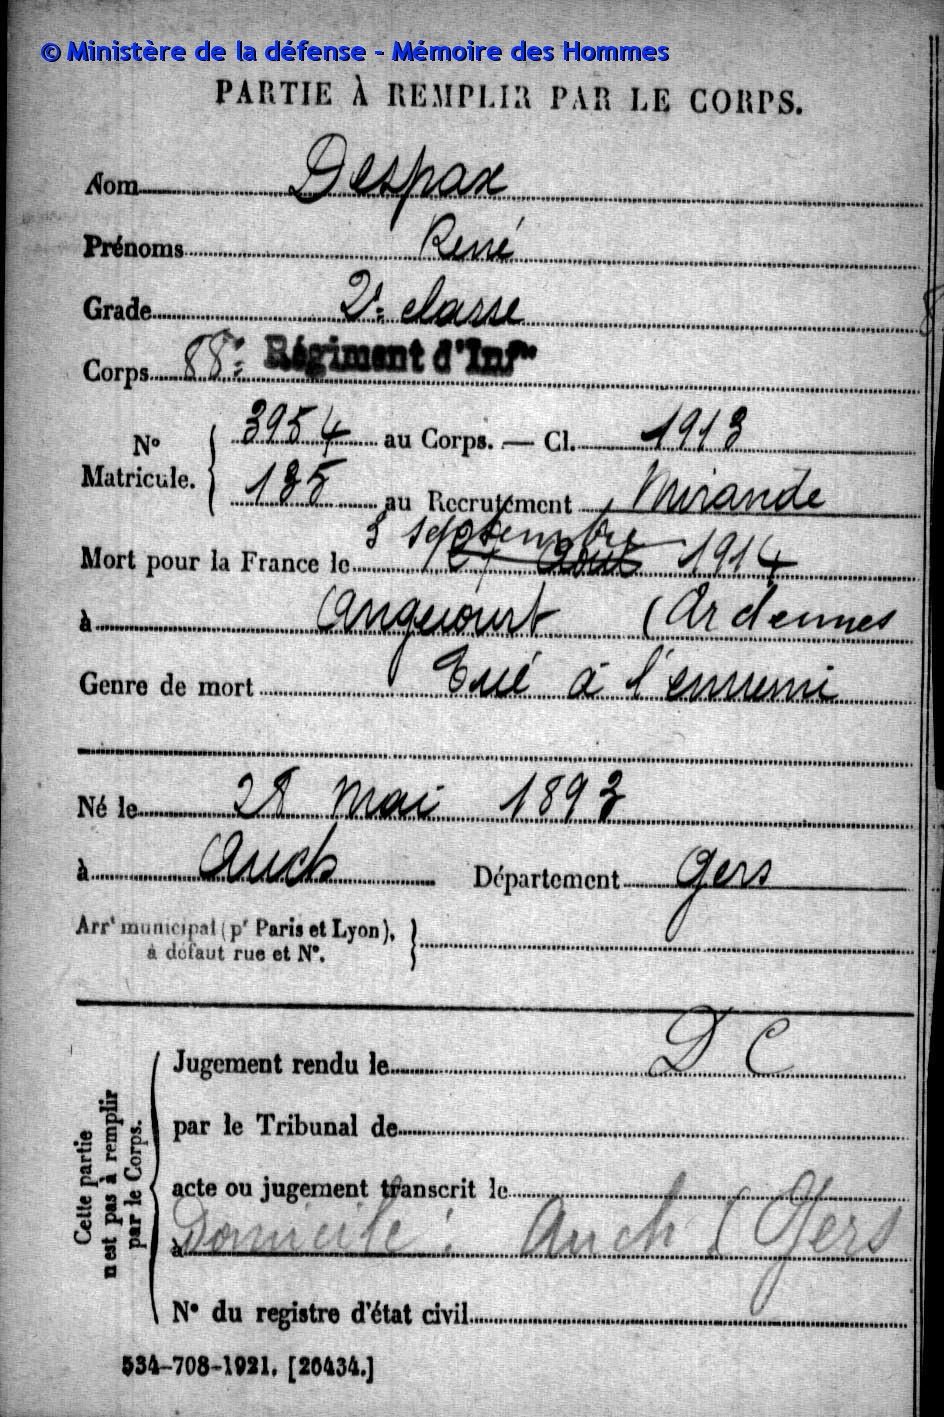 © Ministère de la défense - Mémoire des Hommes
PARTIE À REMPLIR PAR LE CORPS.
Nom Despax
Prénoms René
Grade 2e classe
Corps 88e Régiment d'Infie
N° Matricule. { 3954 au Corps. — Cl. 1913
135 au Recrutement Mirande
3 septembre
Mort pour la France le 27 août 1914
à Angecourt (Ardennes
Genre de mort Tué à l'ennemi
Né le 28 mai 1893
à Auch Département Gers
Arrt municipal (pr Paris et Lyon), }
à défaut rue et N°.
D C
Jugement rendu le
par le Tribunal de
acte ou jugement transcrit le
à Domicile : Auch (Gers
N° du registre d'état civil
Cette partie
n'est pas à remplir
par le Corps.
534-708-1921. [26434.]